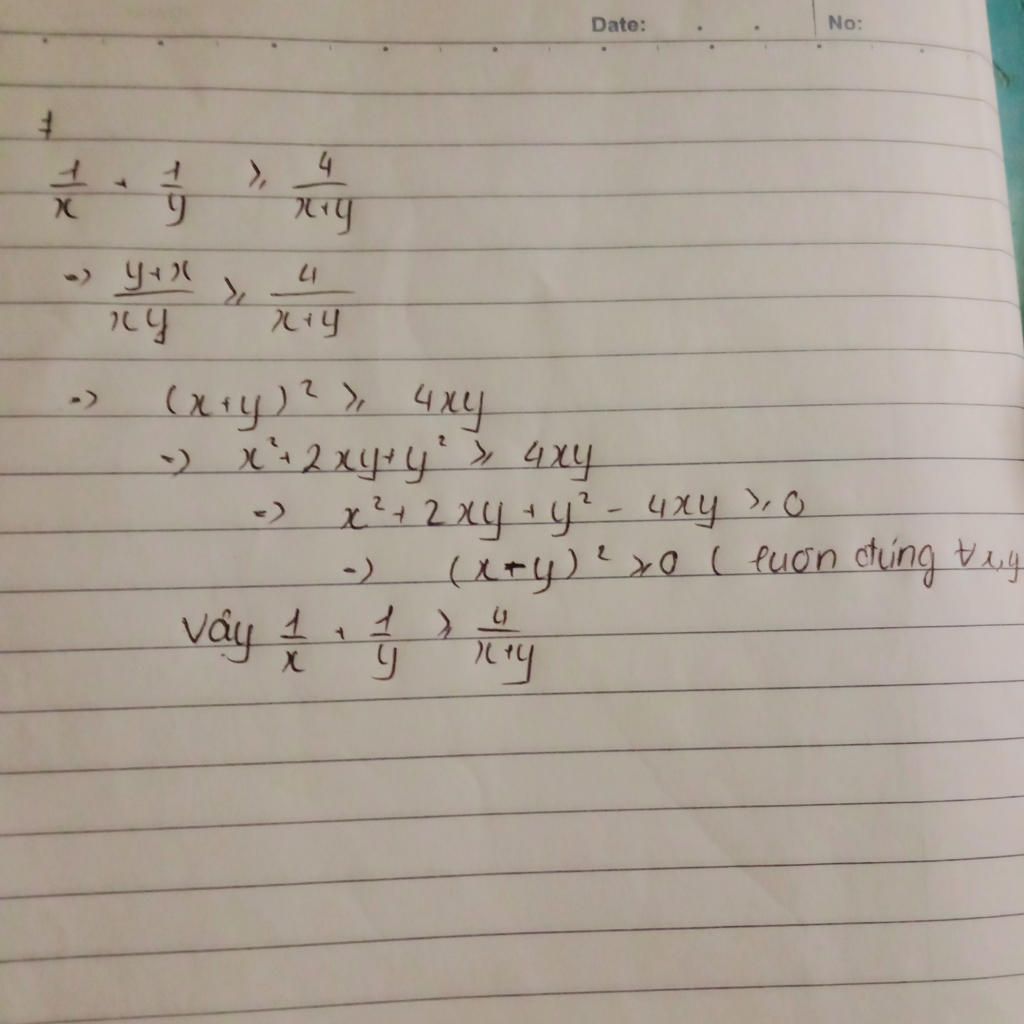 Date: . . No:
1/x + 1/y ≥ 4/(x+y)
=> (y+x)/(xy) ≥ 4/(x+y)
=> (x+y)² ≥ 4xy
=> x² + 2xy + y² ≥ 4xy
=> x² + 2xy + y² - 4xy ≥ 0
=> (x+y)² ≥ 0 ( luôn đúng ∀x,y
Vậy 1/x + 1/y ≥ 4/(x+y)